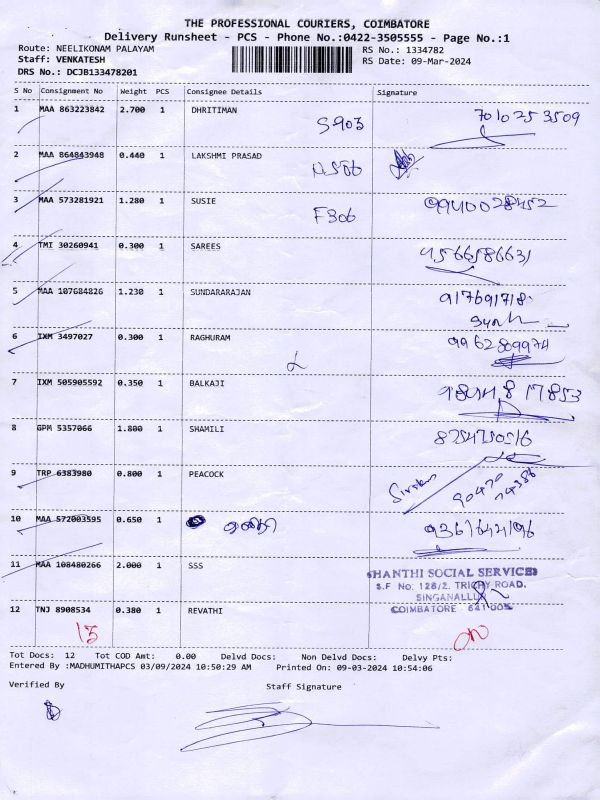 THE PROFESSIONAL COURIERS, COIMBATORE
Delivery Runsheet - PCS - Phone No.:0422-3505555 - Page No.:1
Route: NEELIKONAM PALAYAM
RS No.: 1334782
Staff: VENKATESH
RS Date: 09-Mar-2024
DRS No.: DCJB133478201
S No Consignment No Weight PCS Consignee Details Signature
1 MAA 863223842 2.700 1 DHRITIMAN
S903 7010253509
2 MAA 864843948 0.440 1 LAKSHMI PRASAD
3 MAA 573281921 1.280 1 SUSIE
F306 9940028452
4 TMI 30260941 0.300 1 SAREES
4566586631
5 MAA 107684826 1.230 1 SUNDARARAJAN
917691718
6 IXM 3497027 0.300 1 RAGHURAM
9962809974
7 IXM 505905592 0.350 1 BALKAJI
8 GPM 5357066 1.800 1 SHAMILI
9 TRP 6383980 0.800 1 PEACOCK
10 MAA 572003595 0.650 1
11 MAA 108480266 2.000 1 SSS
SHANTHI SOCIAL SERVICES
S.F No. 128/2. TRICHY ROAD.
SINGANALLUR
COIMBATORE - 641 005
12 TNJ 8908534 0.380 1 REVATHI
Tot Docs: 12 Tot COD Amt: 0.00 Delvd Docs: Non Delvd Docs: Delvy Pts:
Entered By :MADHUMITHAPCS 03/09/2024 10:50:29 AM Printed On: 09-03-2024 10:54:06
Verified By Staff Signature